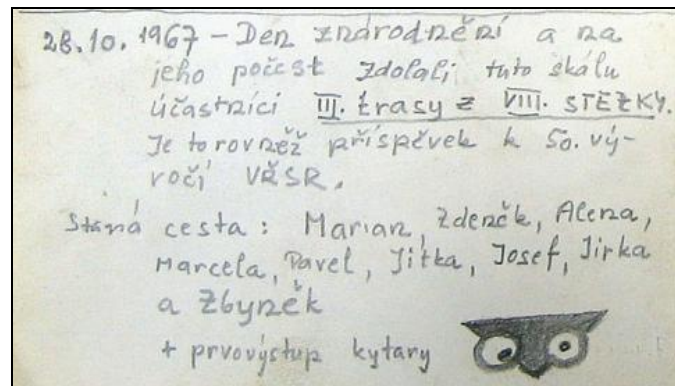 28.10. 1967 – Den znárodnění a na
jeho počest zdolali tuto skálu
účastníci III. trasy z VIII. STEZKY.
Je to rovněž příspěvek k 50. vý-
ročí VŘSR.
Stará cesta: Marian, Zdeněk, Alena,
Marcela, Pavel, Jitka, Josef, Jirka
a Zbyněk
+ prvovýstup kytary